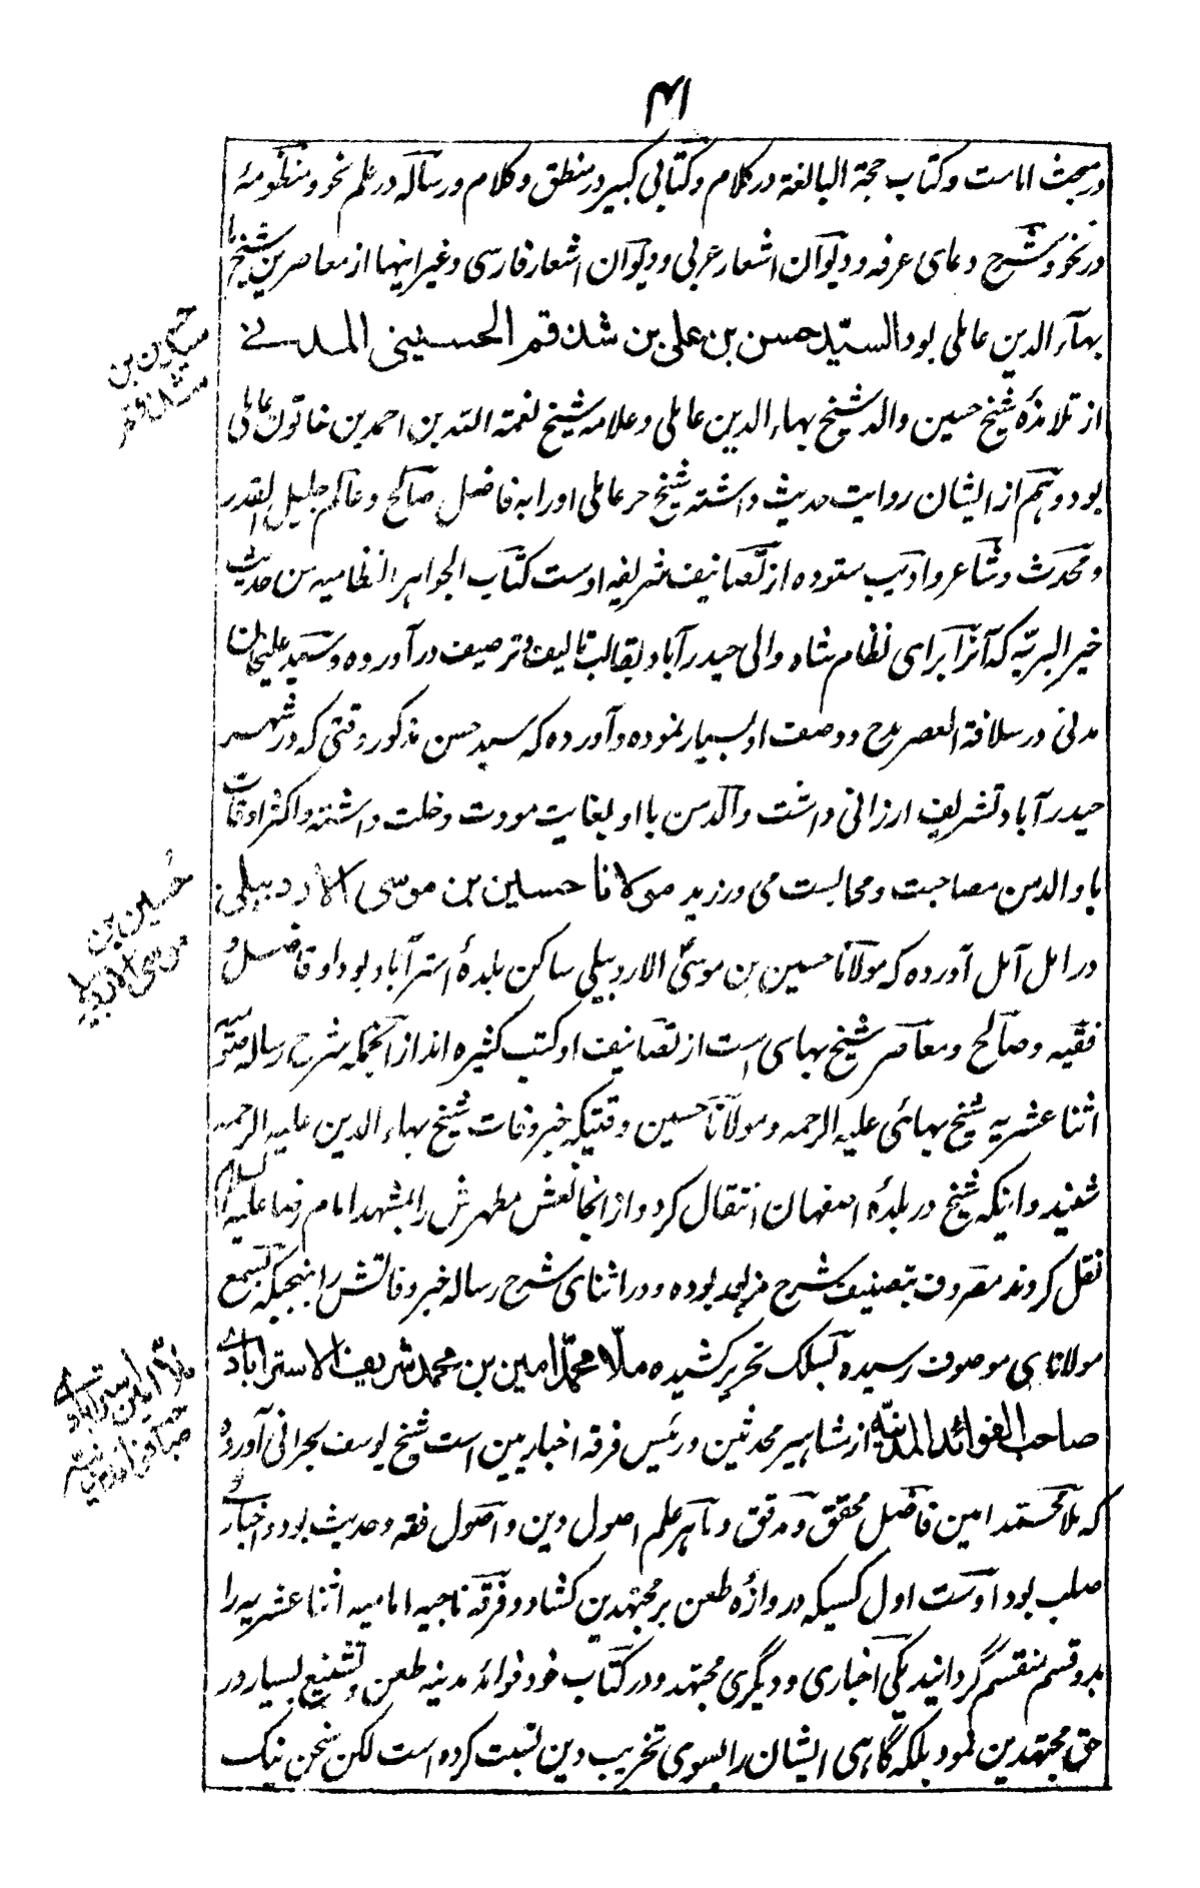 ۴۱
در مبحث امامت و کتاب حجة البالغة در کلام و کتابی کبیر در منطق و کلام و رساله در علم نحو و منظومهٔ
در نحو و شرح دعای عرفه و دیوان اشعار عربی و دیوان اشعار فارسی و غیر اینها از معاصرین شیخ ما
بهاء الدین عاملی بود السیّد حسن بن علی بن شدقم الحسینی المدنے
حسن بن
شدقم
از تلامذهٔ شیخ حسین والد شیخ بهاء الدین عاملی و علامه شیخ نعمة الله بن احمد بن خاتون عاملی
بود و هم از ایشان روایت حدیث داشته شیخ حر عاملی او را به فاضل صالح و عالم جلیل القدر
و محدث و شاعر و ادیب ستوده از تصانیف شریفه اوست کتاب الجواهر النظامیه من حدیث
خیر البریّه که آنرا برای نظام شاه والی حیدرآباد بقالب تالیف و ترصیف در آورده و سید علیخان
مدنی در سلافة العصر مدح و وصف او بسیار نموده و آورده که سید حسن مذکور وقتی که در شهر
حیدرآباد تشریف ارزانی داشت والد من با او بغایت مودت و خلت داشته و اکثر اوقات
با والد من مصاحبت و مجالست می ورزید مولانا حسین بن موسی الاردبیلی
حُسین بن
موسی اردبیلے
در امل آمل آورده که مولانا حسین بن موسیٰ الاردبیلی ساکن بلدهٔ استرآباد بود او فاضل و
فقیه و صالح و معاصر شیخ بهای است از تصانیف او کتب کثیره اند از آنجمله شرح رساله صومیه
اثنا عشریه شیخ بهائی علیه الرحمه و مولانا حسین وقتیکه خبر وفات شیخ بهاء الدین علیه الرحمه
شنید و اینکه شیخ در بلدهٔ اصفهان انتقال کرد و از انجا نعش مطهرش را بمشهد امام رضا علیه السلام
نقل کردند مصروف بتصنیف شرح مزبور بوده و در اثنای شرح رساله خبر وفاتش را بنهجیکه بسمع
مولانای موصوف رسیده بسلک تحریر کشیده ملّا محمّد امین بن محمد شریف الاسترابادے
ملا امین استرابادے
صاحب فوائد مدنیه
صاحب الفوائد المدنیّه از مشاهیر محدثین و رئیس فرقه اخباریین است شیخ یوسف بحرانی آورده
که ملا محمد امین فاضل محقق و مدقق و ماهر علم اصول دین و اصول فقه و حدیث بود و اخبارے
صلب بود و اوست اول کسیکه دروازهٔ طعن بر مجتهدین کشاد و فرقه ناجیه امامیه اثنا عشریه را
بدو قسم منقسم گردانید یکی اخباری و دیگری مجتهد و در کتاب خود فوائد مدنیه طعن و تشنیع بسیار در
حق مجتهدین نمود بلکه گاهی ایشان را بسوی تخریب دین نسبت کرده است لکن سخن نیک